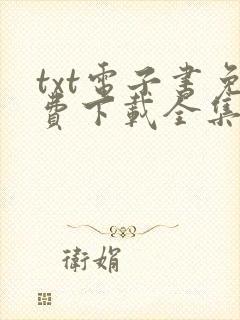 txt电子書免
費下載全集
衛娟